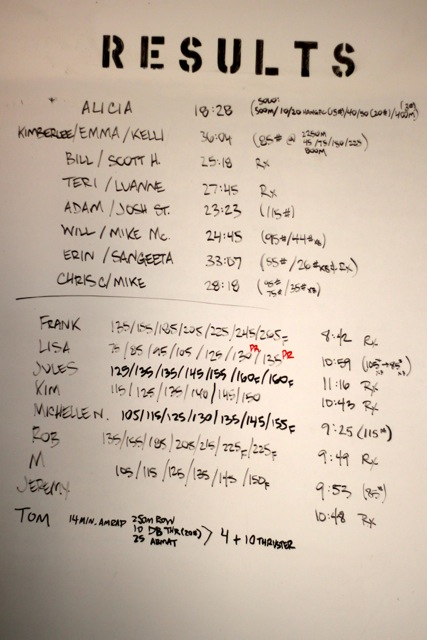 RESULTS
ALICIA 18:28 (SOLO: 500M/10/20 HANGPC (75#)/40/50 (20#)/400M)
KIMBERLEE/EMMA/KELLI 36:04 (85# @ 2250M 45/75/150/225 800M)
BILL/SCOTT H. 25:18 Rx
TERI/LUANNE 27:45 Rx
ADAM/JOSH ST. 23:23 (115#)
WILL/MIKE Mc. 24:45 (95#/44#KB)
ERIN/SANGEETA 33:07 (55#/26#KB & Rx)
CHRIS C/MIKE 28:18 (95# 75#/35# KB)
FRANK 135/155/185/205/225/245/265F 8:42 Rx
LISA 75/85/95/105/125/130 PR/135 PR 10:59 (105#→85#)
JULES 125/135/135/145/155/160F/160F 11:16 Rx
KIM 115/125/135/140/145/150 10:43 Rx
MICHELLE N. 105/115/125/130/135/145/155F 9:25 (115#)
ROB 135/155/185/205/215/225F/225F 9:49 Rx
M 105/115/125/135/145/150F 9:53 (85#)
JEREMY 10:48 Rx
TOM 14 MIN. AMRAP 250M ROW
10 DB THR (20#) > 4 + 10 THRYSTER
25 ABMAT